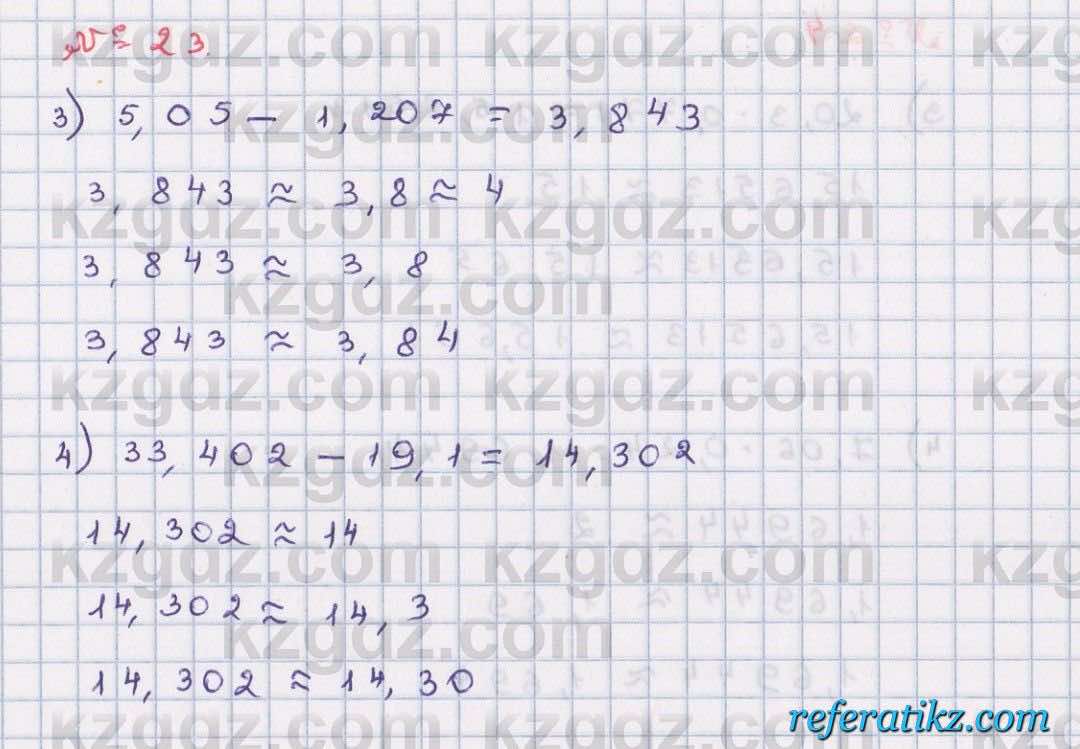 № 23.
3) 5,05 - 1,207 = 3,843
3,843 ≈ 3,8 ≈ 4
3,843 ≈ 3,8
3,843 ≈ 3,84
4) 33,402 - 19,1 = 14,302
14,302 ≈ 14
14,302 ≈ 14,3
14,302 ≈ 14,30
kzgdz.com
referatikz.com